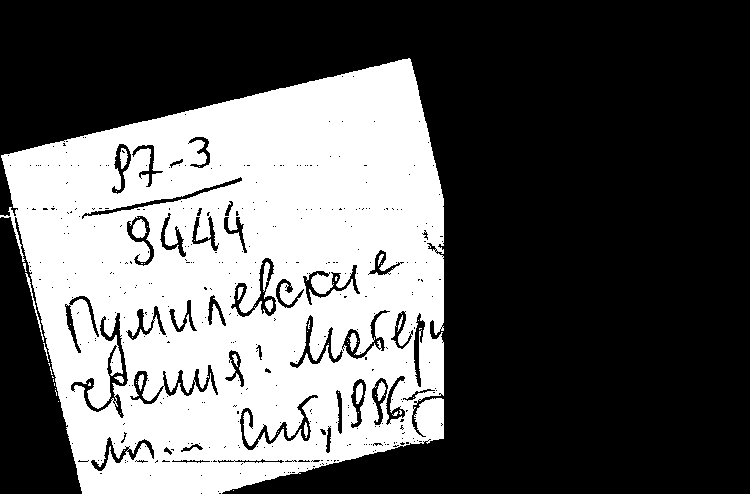 97-3
9444
Гумилевские
чтения: Матери
лы... Спб., 1996